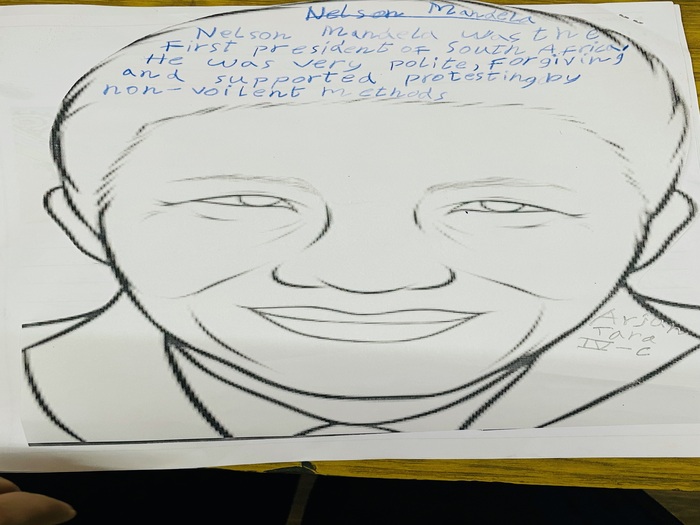 Nelson Mandela
Nelson Mandela was the
First president of South Africa,
He was very polite, Forgiving
and supported protesting by
non-voilent methods
Tara
IV-C